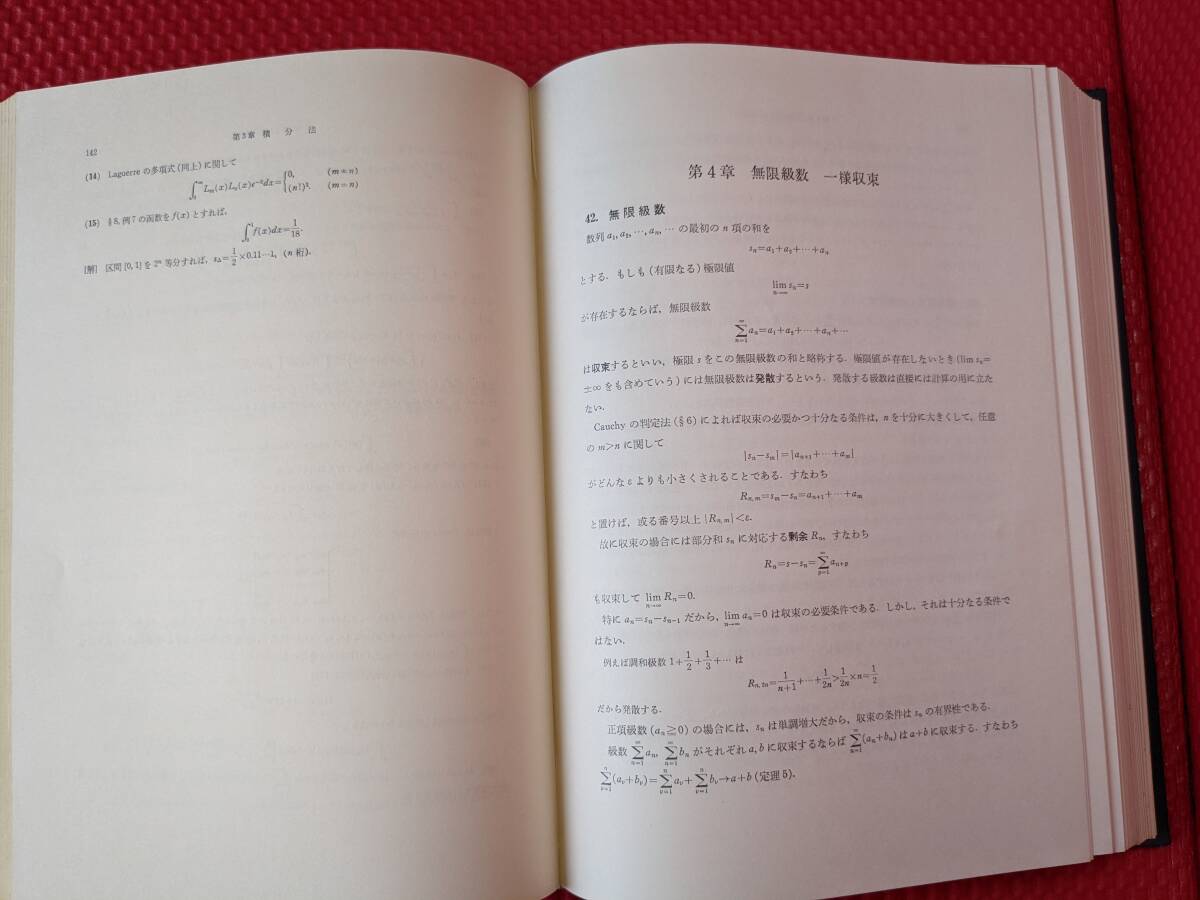 142
第3章 積 分 法
(14) Laguerre の多項式(同上)に関して
∫₀^∞ Lₘ(x)Lₙ(x)e⁻ˣdx={0, (m≠n)
(n!)². (m=n)
(15) §8, 例7の函数を f(x) とすれば,
∫₀¹ f(x)dx=1/18.
[解] 区間 [0, 1] を 2ⁿ 等分すれば, s_Δ=1/2×0.11⋯1, (n 桁).
第4章 無限級数 一様収束
42. 無限級数
数列 a₁, a₂, ⋯, aₙ, ⋯ の最初の n 項の和を
sₙ=a₁+a₂+⋯+aₙ
とする. もしも(有限なる)極限値
lim_{n→∞} sₙ=s
が存在するならば, 無限級数
∑_{n=1}^∞ aₙ=a₁+a₂+⋯+aₙ+⋯
は収束するといい, 極限 s をこの無限級数の和と略称する. 極限値が存在しないとき(lim sₙ=
±∞をも含めていう)には無限級数は発散するという. 発散する級数は直接には計算の用に立た
ない.
Cauchy の判定法(§6)によれば収束の必要かつ十分なる条件は, n を十分に大きくして, 任意
の m>n に関して
|sₙ−sₘ|=|aₙ₊₁+⋯+aₘ|
がどんな ε よりも小さくされることである. すなわち
Rₙ,ₘ=sₘ−sₙ=aₙ₊₁+⋯+aₘ
と置けば, 或る番号以上 |Rₙ,ₘ|<ε.
故に収束の場合には部分和 sₙ に対応する剰余 Rₙ, すなわち
Rₙ=s−sₙ=∑_{p=1}^∞ aₙ₊ₚ
も収束して lim_{n→∞} Rₙ=0.
特に aₙ=sₙ−sₙ₋₁ だから, lim_{n→∞} aₙ=0 は収束の必要条件である. しかし, それは十分なる条件で
はない.
例えば調和級数 1+1/2+1/3+⋯ は
Rₙ,₂ₙ=1/(n+1)+⋯+1/2n>1/2n×n=1/2
だから発散する.
正項級数(aₙ≧0)の場合には, sₙ は単調増大だから, 収束の条件は sₙ の有界性である.
級数 ∑_{n=1}^∞ aₙ, ∑_{n=1}^∞ bₙ がそれぞれ a, b に収束するならば ∑_{n=1}^∞(aₙ+bₙ) は a+b に収束する. すなわち
∑_{ν=1}^n(a_ν+b_ν)=∑_{ν=1}^n a_ν+∑_{ν=1}^n b_ν→a+b (定理5).